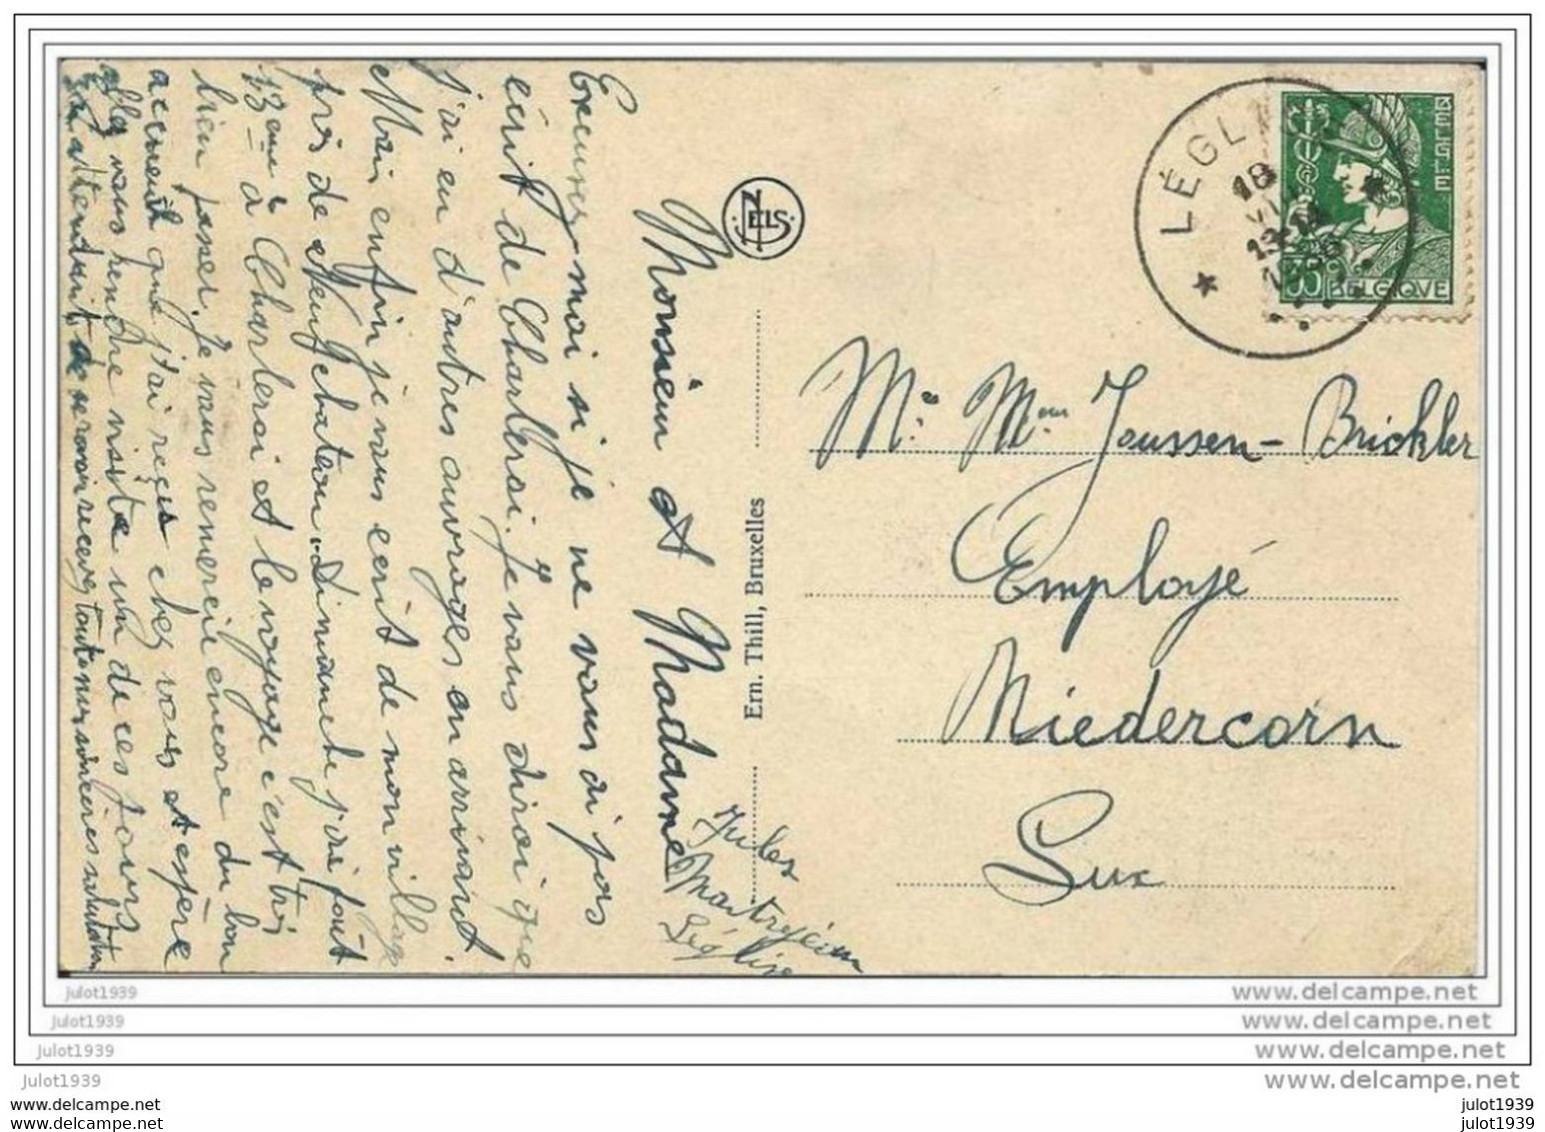 Monsieur et Madame
Excusez-moi si je ne vous ai pas
écrit de Charleroi. Je vous dirai que
j'ai eu d'autres ouvrages en arrivant.
Mais enfin je vous écrit de mon village
près de Neufchateau. Dimanche j'ai fait
13eme à Charleroi et le voyage c'est très
bien passer. Je vous remercie encore du bon
accueuil que j'ai reçus chez vous et espère
allez vous rendre visite un de ces jours
En attendant de se revoir recevez tout nos sincères salutations
Jules
Léglise
NELS
Ern. Thill, Bruxelles
LÉGL
18
13-14
36
BELGIE
35 BELGIQVE
Mr. Mme Jaussen-Brickler
Employé
Niedercorn
Lux
julot1939
julot1939
julot1939
julot1939
julot1939
julot1939
www.delcampe.net
www.delcampe.net
www.delcampe.net
www.delcampe.net
julot1939
julot1939